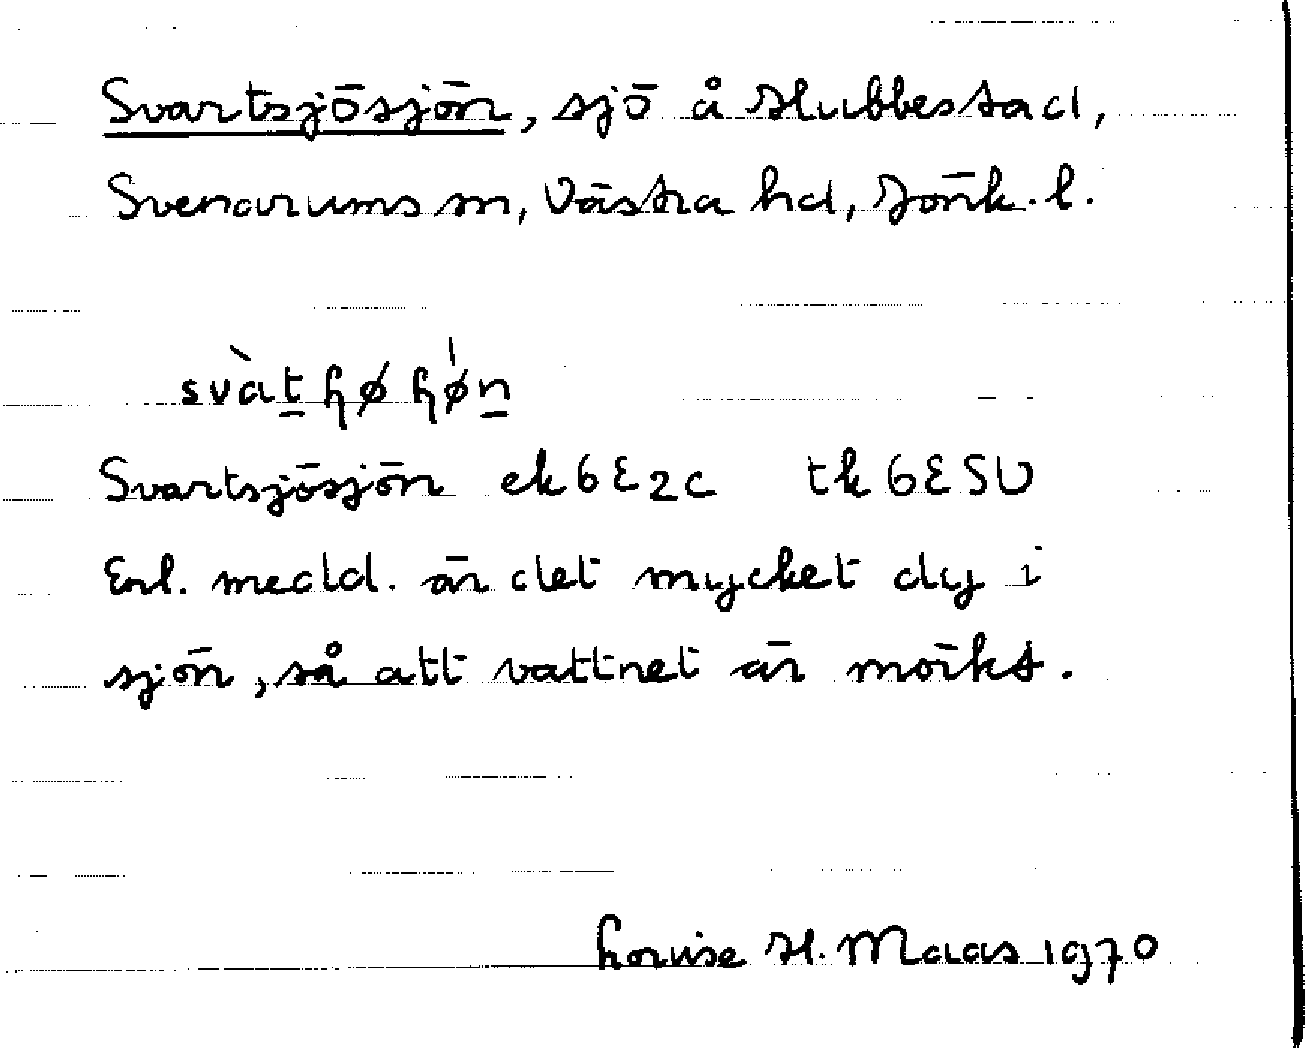 Svartsjösjön, sjö å Hubbestad,
Svenarums sn, Västra hd, Jönk. l.
svàt̲ɧøɧø̍n̲
Svartsjösjön ek 6E2c tk 6E SV
Enl. medd. är det mycket dy i
sjön, så att vattnet är mörkt.
Louise H. Maas 1970